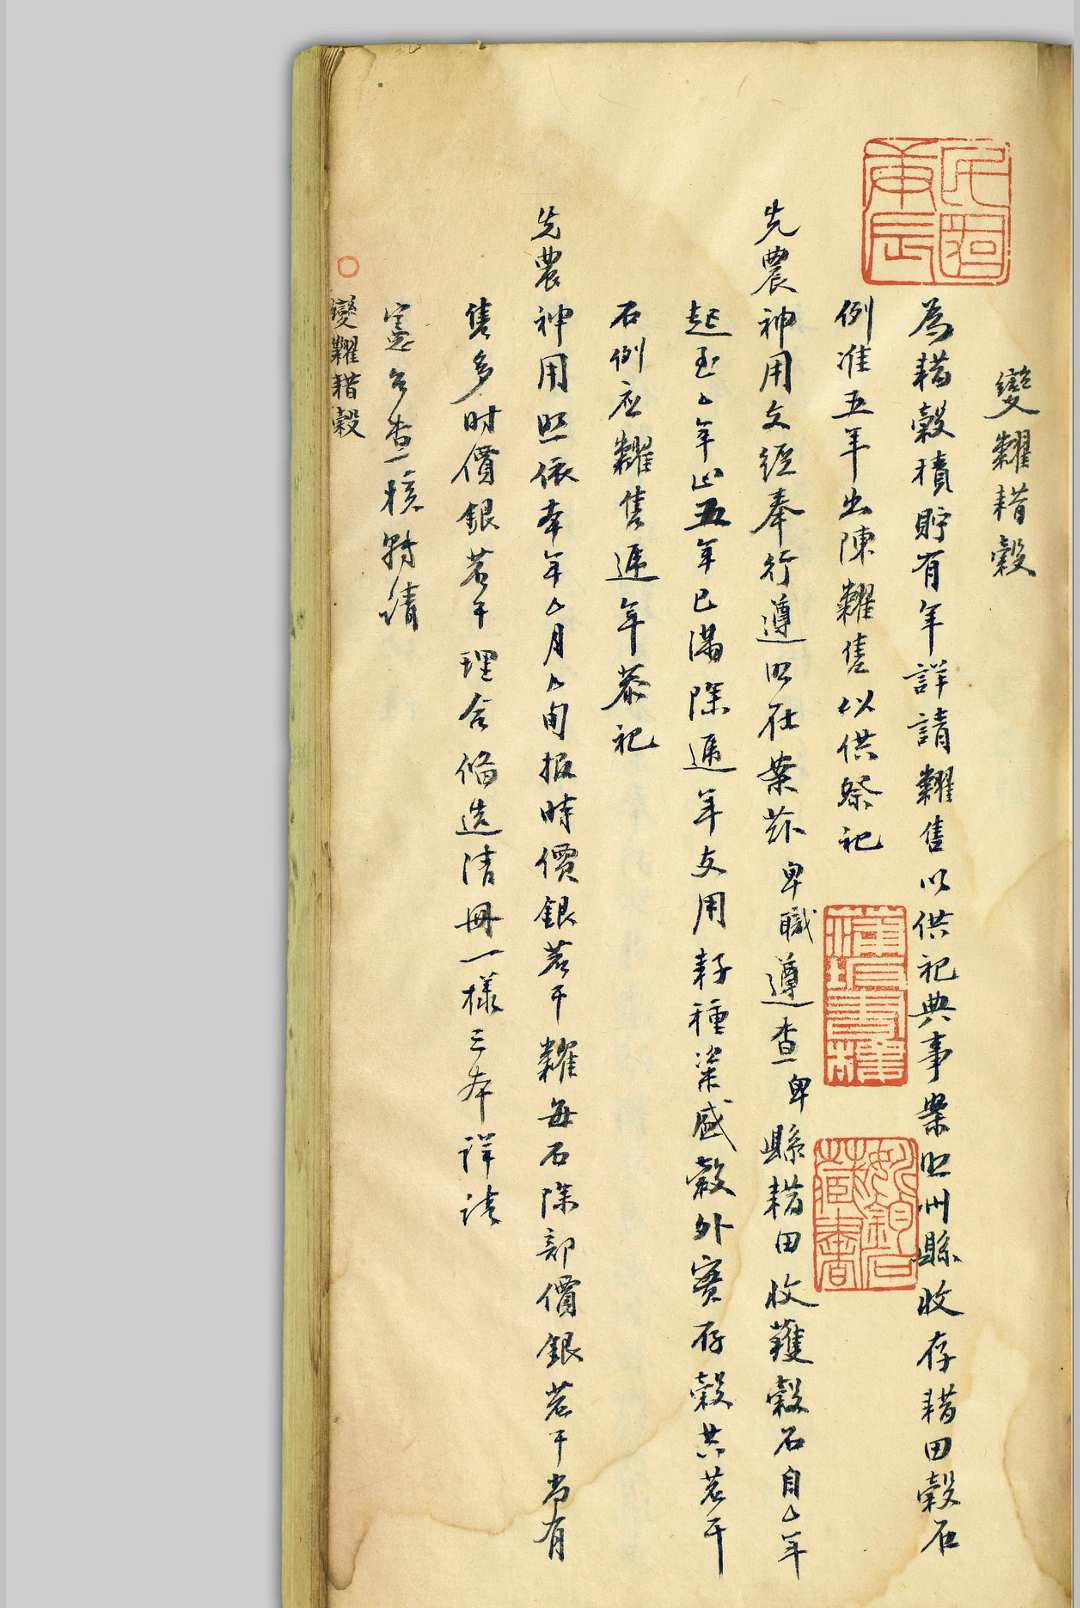 民國庚辰
變糶耤穀
為耤穀積貯有年詳請糶售以供祀典事案照州縣收存耤田穀石
例准五年出陳糶售以供祭祀
蒲坂書樓
姚鈞石藏書
先農神用文經奉行遵照在案茲卑職遵查卑縣耤田收穫穀石自厶年
起至厶年止五年已滿除遞年支用耔種粢盛穀外實存穀共若干
石例应糶售遞年恭祀
先農神用照依本年厶月厶旬报時價銀若干糶每石除部價銀若干尚有
售多时價銀若干理合俻造清冊一樣三本詳請
憲台查核轉請
變糶耤穀